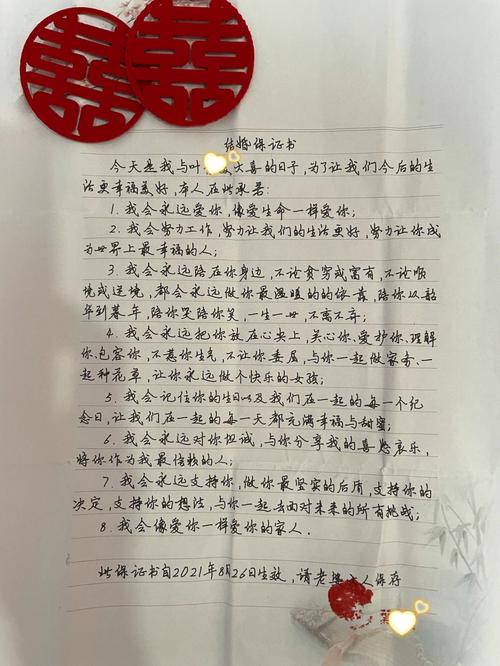 囍囍
结婚保证书
今天是我与叶 大喜的日子,为了让我们今后的生
活更幸福美好,本人在此承诺:
1.我会永远爱你,像爱生命一样爱你;
2.我会努力工作,努力让我们的生活更好,努力让你成
为世界上最幸福的人;
3.我会永远陪在你身边,不论贫穷或富有,不论顺
境或逆境,都会永远做你最温暖的的依靠,陪你从韶
华到暮年,陪你哭陪你笑,一生一世,不离不弃;
4.我会永远把你放在心尖上,关心你、爱护你、理解
你、包容你,不惹你生气,不让你委屈,与你一起做家务、一
起种花草,让你永远做个快乐的女孩;
5.我会记住你的生日以及我们在一起的每一个纪
念日,让我们在一起的每一天都充满幸福与甜蜜;
6.我会永远对你坦诚,与你分享我的喜怒哀乐,
将你作为我最信赖的人;
7.我会永远支持你,做你最坚实的后盾,支持你的
决定,支持你的想法,与你一起去面对未来的所有挑战;
8.我会像爱你一样爱你的家人.
此保证书自2021年8月26日生效,请老婆 人保存